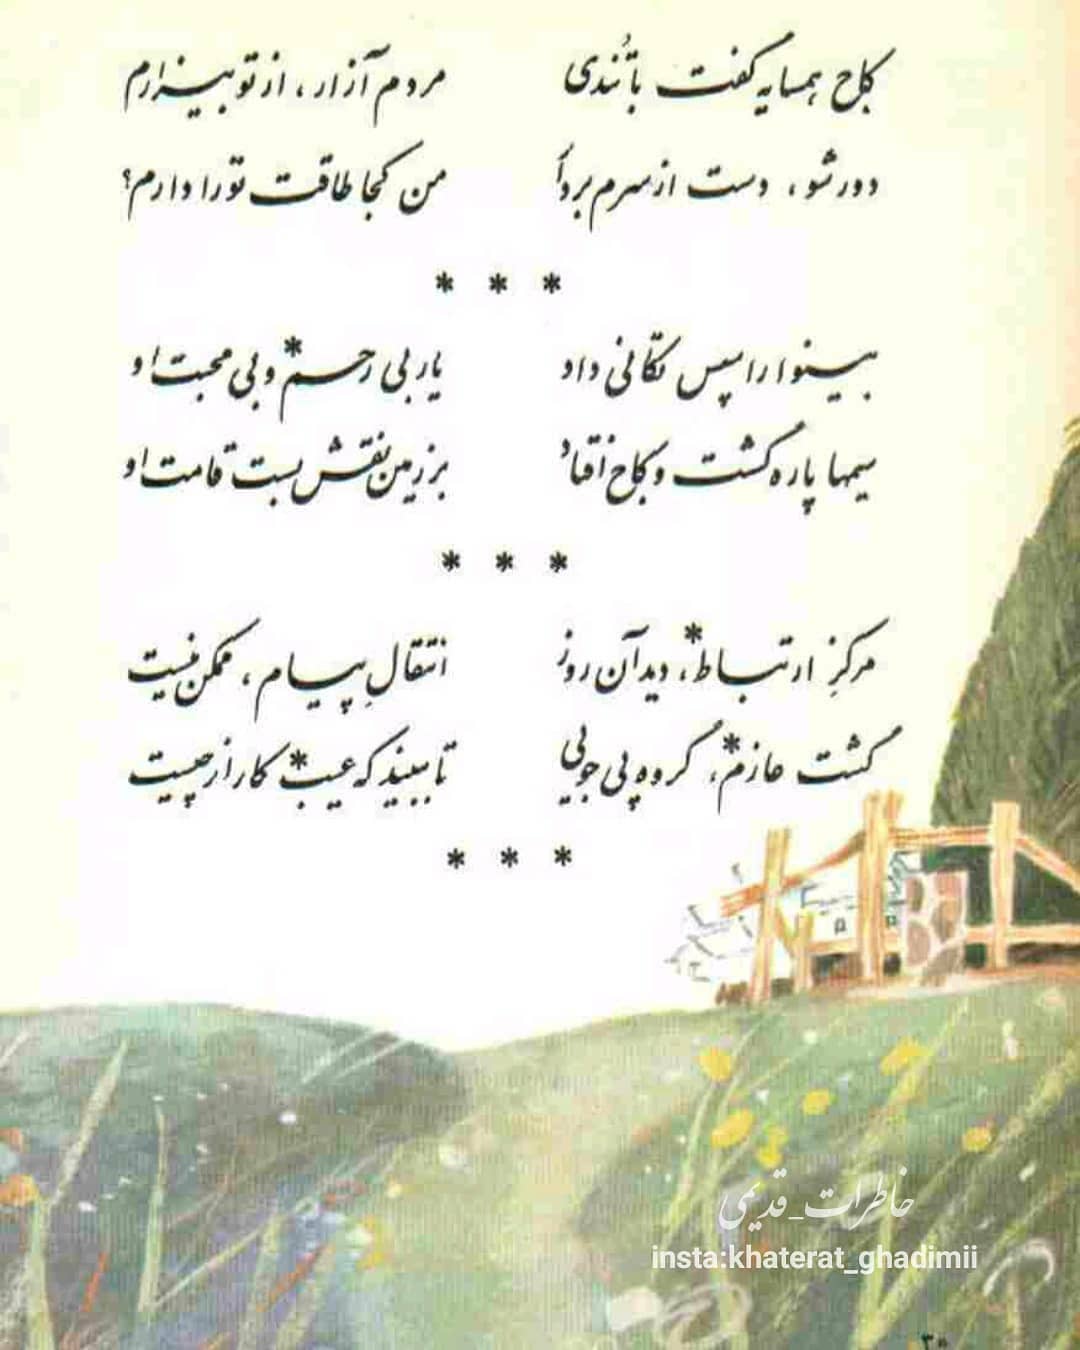 کاج همسایه گفت با تُندی    مردم آزار، از تو بیزارم
دور شو، دست از سرم بردار    من کجا طاقت تو را دارم؟
* * *
بینوا را سپس تکانی داد    یار بی رحم* و بی محبت او
سیمها پاره گشت و کاج افتاد    بر زمین نقش بست قامت او
* * *
مرکزِ ارتباط*، دید آن روز    انتقالِ پیام، ممکن نیست
گشت عازم*، گروه پی جویی    تا ببیند که عیب* کار از چیست
* * *
خاطرات_قدیمی
insta:khaterat_ghadimii